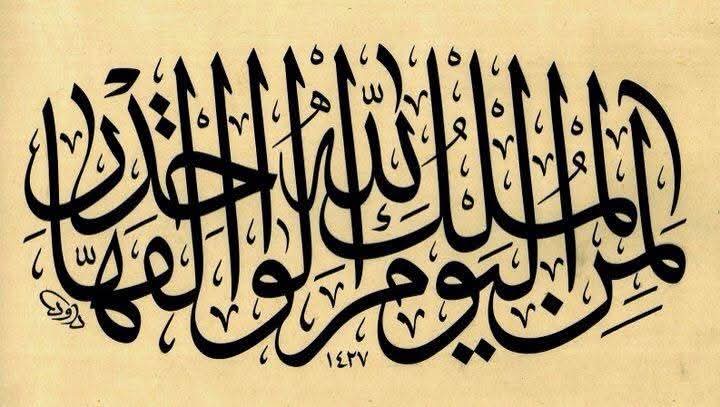 لِمَنِ الْمُلْكُ الْيَوْمَ لِلّٰهِ الْوَاحِدِ الْقَهَّارِ
داود
١٤٢٧